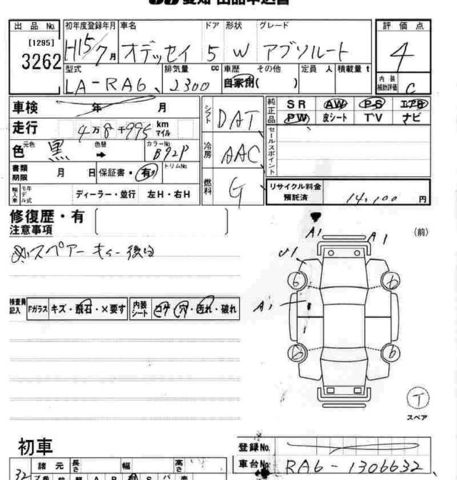 愛知 出品申込書
出品No. 初年度登録年月 車名 ドア 形状 グレード 評価点
[1295] 3262 H15/7月 オデッセイ 5 W アブソルート 4
型式 排気量 cc 車歴 その他 定員 人 積載量 t 内装補助評価
LA-RA6 2300 自家用( ) C
車検 年 月 シフト DAT 純正品 SR AW PS エアB
走行 4万8千995 km マイル PW 皮シート TV ナビ
元色 色替 カラーNo. 冷房 AAC セールスポイント
色 黒 B92P
書類期限 月 日 保証書・有 トリムNo.
輸入車 モデル年 年 ディーラー・並行 左H・右H 燃料 G リサイクル料金預託済 14,100 円
修復歴・有
注意事項 (前)
スペアーキー後日
A1 A1
検査員記入 Fガラス キズ・飛石・×要す 内装シート コゲ・穴・汚れ・破れ
T
スペア
初車
登録No.
諸元 長さ 幅 高さ 車台No. RA6-1306632